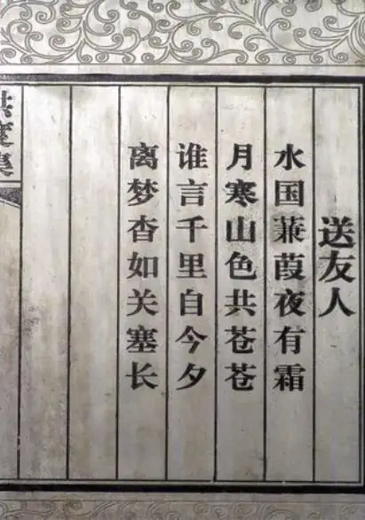 送友人
水国蒹葭夜有霜
月寒山色共苍苍
谁言千里自今夕
离梦杳如关塞长